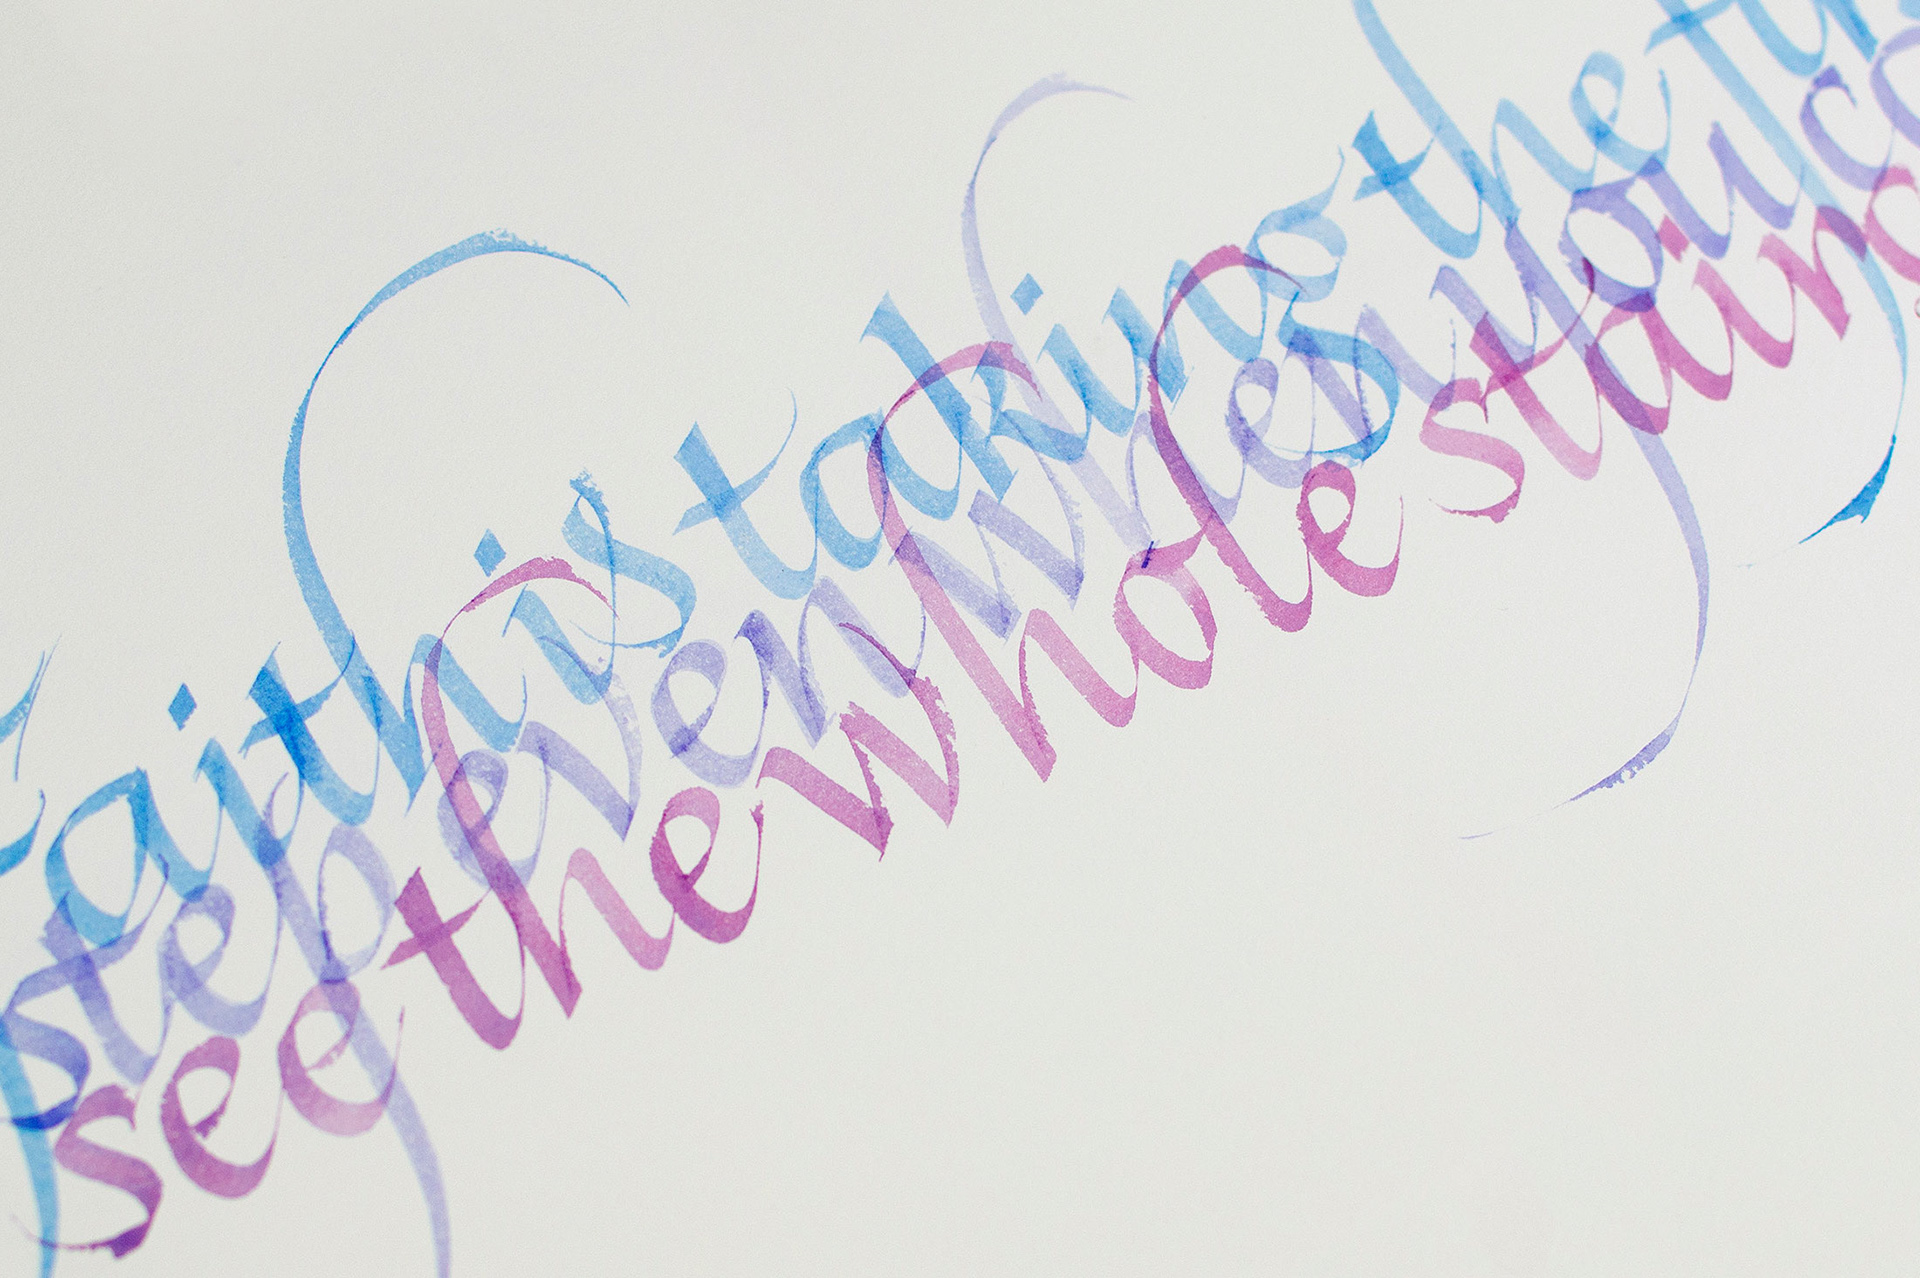 Faith is taking the fir
step even when you ca
see the whole stairc